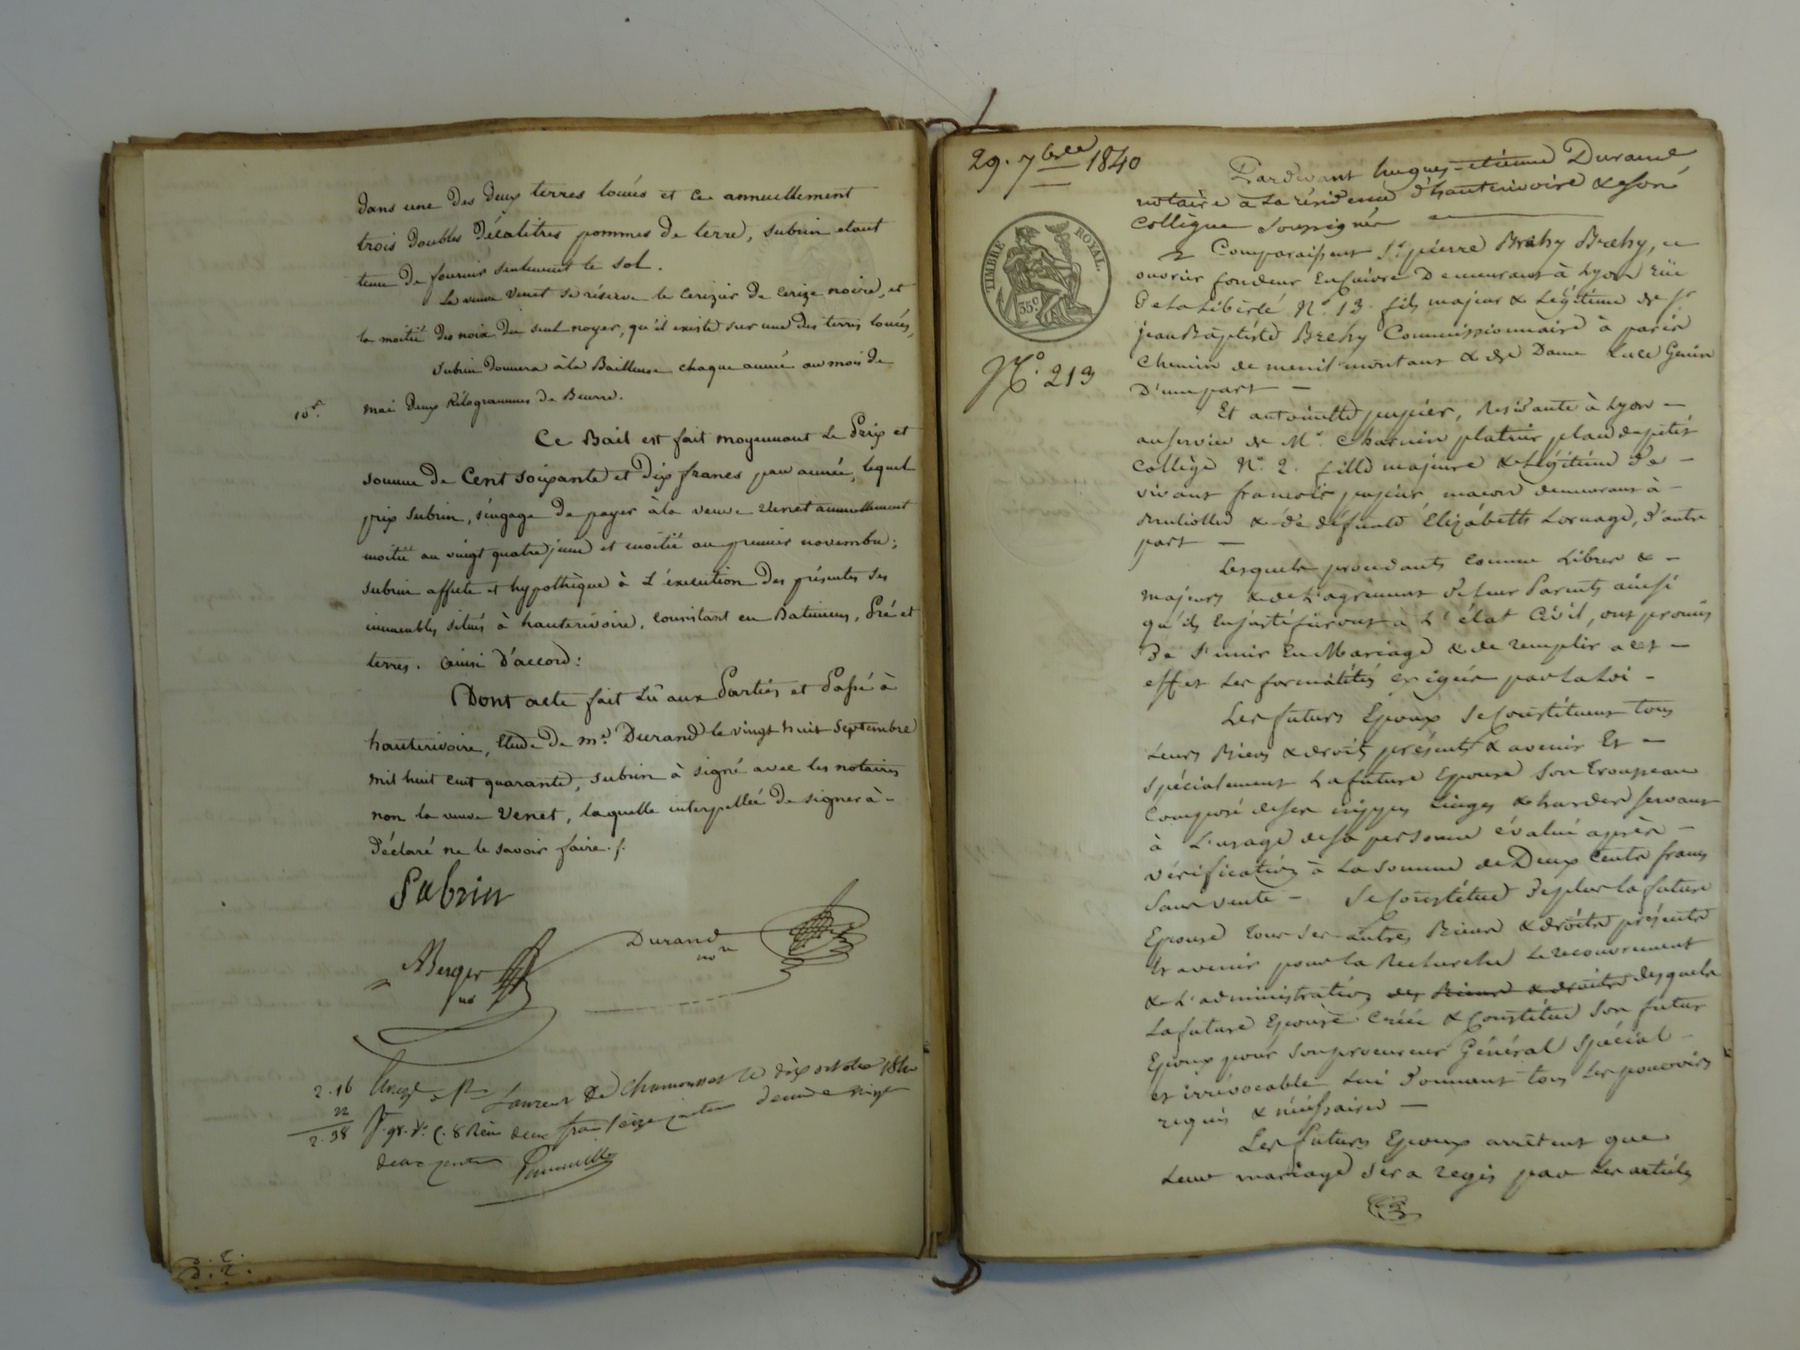 dans une des deux terres louées et ce annuellement
trois doubles Décalitres pommes de terre, subrin etant
tenu de fournir seulement le sol.
La veuve Venet se réserve le cerizier de cerize noire, et
la moitié des noix du seul noyer, qu'il existe sur une des terres louées,
Subrin donnera à la Bailleuse chaque année au mois de
10f.
mai deux Kilogrammes de Beurre.
Ce Bail est fait moyennant le Prix et
somme de Cent soixante et Dix francs par année, lequel
prix Subrin, s'engage de payer à la veuve Venet annuellement
moitié au vingt quatre juin et moitié au premier novembre;
Subrin affecte et hypothèque à L'éxecution des présentes ses
immeubles situés à hauterivoire, consistant en Batiments, Pré et
terres. ainsi d'accord:
Dont acte fait Lu aux Parties et Passé à
hauterivoire, Etude de me. Durand le vingt huit Septembre
mil huit cent quarante, subrin à signé avec les notaires
non la veuve Venet, laquelle interpellée de signer à -
Déclaré ne le savoir faire./.
Subrin
Berger
Durand
nore
2.16
22
2.38
St Laurent de Chamousset le dix octobre 1840
deux francs seize centimes vingt
deux centimes
29. 7bre 1840
TIMBRE ROYAL.
35c
No. 213
Pardevant hugues-etienne Durand
notaire à La résidence d'hauterivoire & son
Collègue Soussignés
Comparaissent Sr. pierre Brehy Brehy,
ouvrier fondeur En cuivre Demeurant à Lyon rüe
De La Liberté No. 13. fils majeur & Légitime de Sr
jean Baptiste Brehy Commissionnaire à paris
Chemin de menil montant & de Dame Luce Genin
D'une part -
Et antoinette pupier, Residante à Lyon -
au service de Mr. Charnin platrier place du petit
Collège No. 2. fille majeure & Légitime De -
vivant francois pupier maçon demeurant à -
& de défunte Elizabeth Lornage, d'autre
part -
Lesquels procédants comme Libres & -
majeurs & de L'agrément de leur Parents ainsi
qu'ils En justifieront à L'état Civil, ont promis
De S'unir En Mariage & de remplir a cet -
effet Les formalités exigées par La Loi -
Les futurs Epoux Se Constituent tous
Leurs Biens & droits présents & avenir Et -
Spécialement La future Epouse Son trousseau
Composé de ses nippes Linges & hardes servant
à L'usage de sa personne évalué après -
vérification à La somme de Deux Cents francs
Sans vente - Se Constitue de plus la future
Epouse tous ses autres Biens & droits présents
& avenir pour la Recherche Le recouvrement
& L'administration des Biens & droits desquels
La future Epouse Créée & Constitue Son futur
Epoux pour Son procureur Général Spécial -
et irrévocable Lui donnant tous Les pouvoirs
requis & nécessaires -
Les futurs Epoux arrêtent que
Leur mariage Sera régis par Les articles